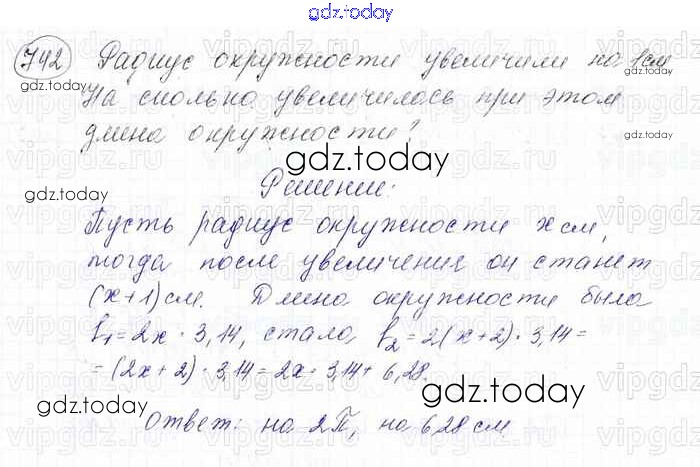 gdz.today
742 Радиус окружности увеличили на 1 см
На сколько увеличилась при этом
длина окружности?
Решение:
Пусть радиус окружности x см,
тогда после увеличения он станет
(x+1) см. Длина окружности была
l₁=2x · 3,14, стала l₂=2(x+2) · 3,14=
=(2x+2) · 3,14=2x · 3,14+ 6,28.
Ответ: на 2П, на 6,28 см
gdz.today
gdz.today
gdz.today
gdz.today
gdz.today
gdz.today
gdz.today